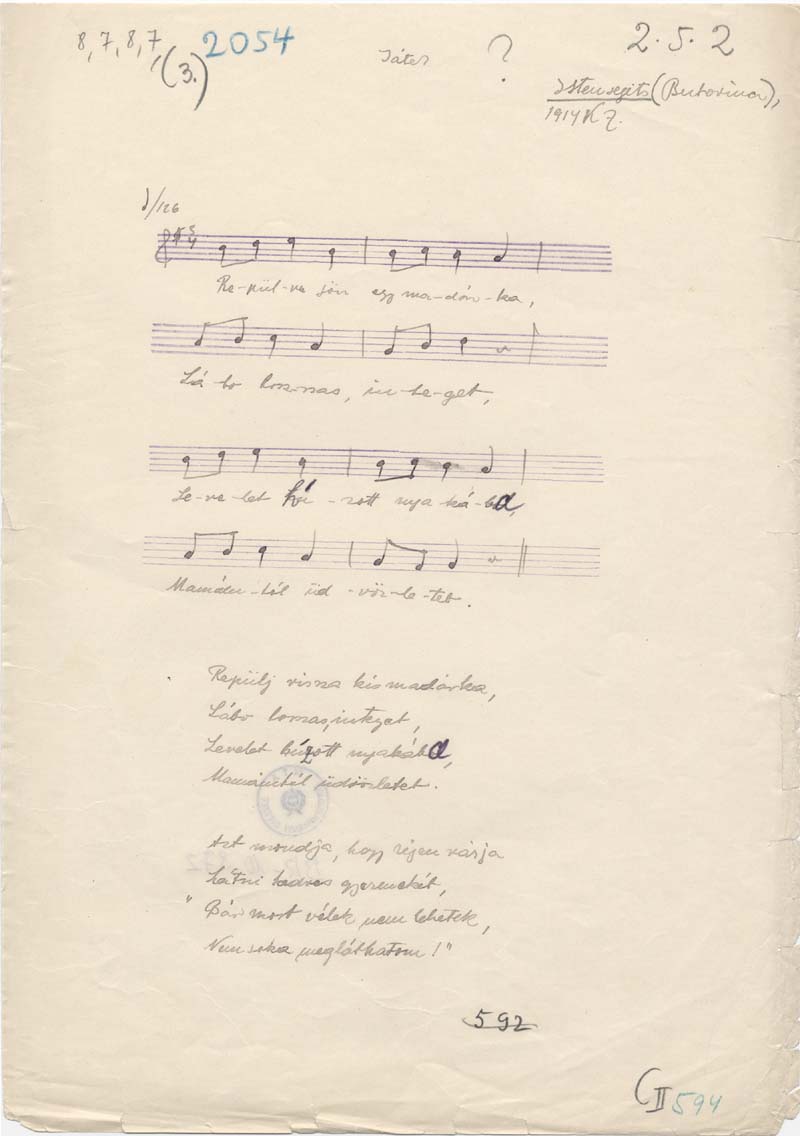 8, 7, 8, 7, (3.) 2054 Játék ? 2. 5. 2
Istensegits (Bukovina),
1914 K Z.
♩/126
Re-pül-ve jön egy ma-dár-ka,
Lá-bo hosszas, in-te-get,
Le-ve-let hú-zott nya ká-ba,
Mamám-tól üd-vöz-le-tet.
Repülj vissza kis madárka,
Lábo hosszas, integet,
Levelet húzott nyakába,
Mamámtól üdvözletet.
Azt mondja, hogy régen várja
Látni kedves gyermekét,
"Bár most vélek nem lehetek,
Nem soka megláthatom!"
592
C II 594